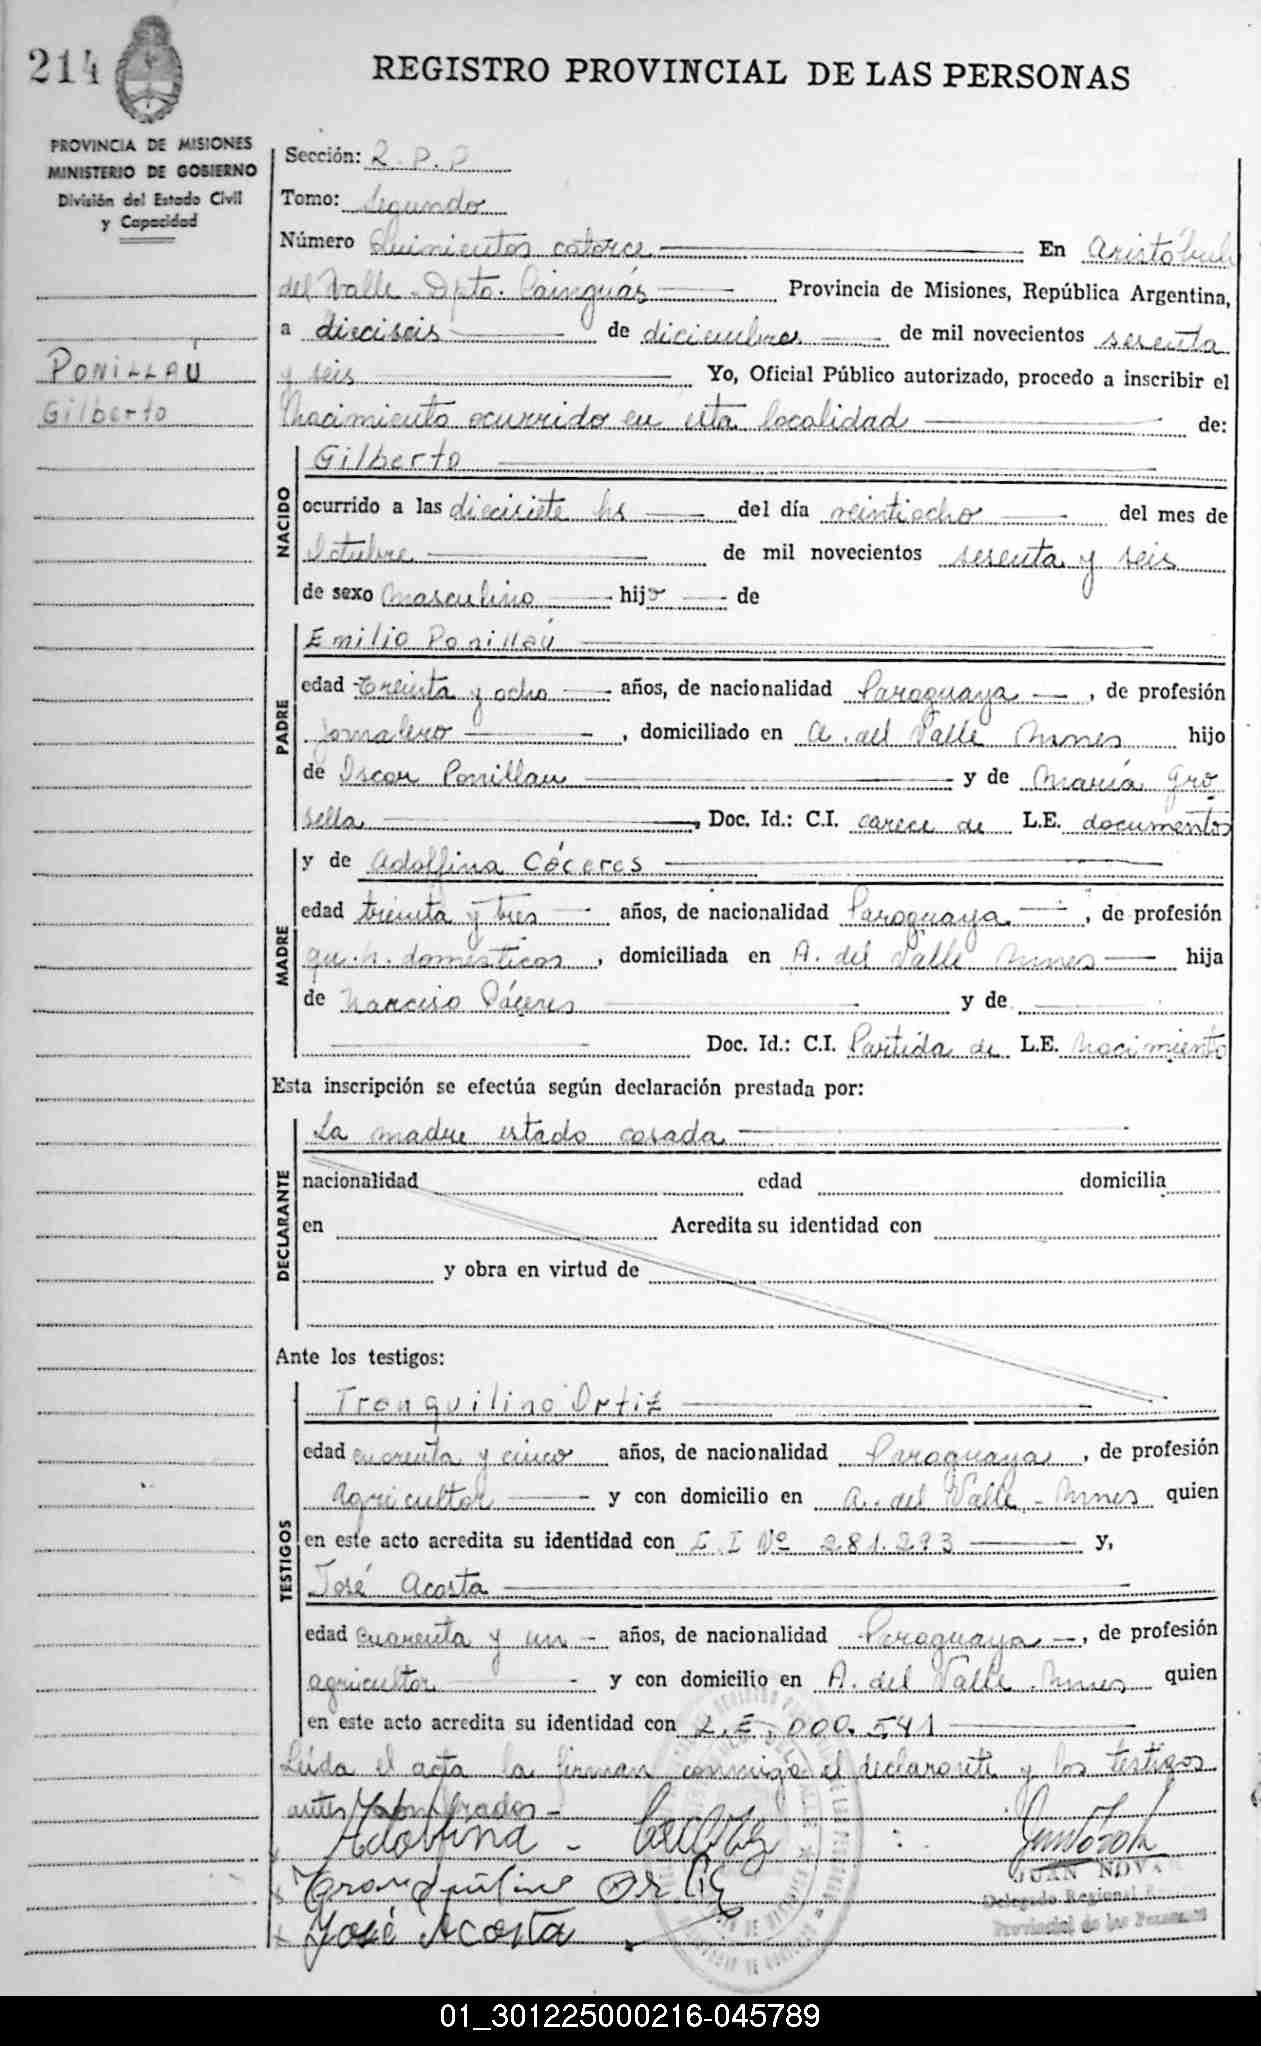 214
REGISTRO PROVINCIAL DE LAS PERSONAS
PROVINCIA DE MISIONES
MINISTERIO DE GOBIERNO
División del Estado Civil
y Capacidad
PONILLAÚ
Gilberto
Sección: R.P.P
Tomo: Segundo
Número Quinientos catorce En Aristóbulo
del Valle - Dpto. Cainguás Provincia de Misiones, República Argentina,
a dieciseis de diciembre de mil novecientos sesenta
y seis Yo, Oficial Público autorizado, procedo a inscribir el
Nacimiento ocurrido en esta localidad de:
NACIDO
Gilberto
ocurrido a las diecisiete hs del día veintiocho del mes de
Octubre de mil novecientos sesenta y seis
de sexo Masculino hijo de
PADRE
Emilio Ponillaú
edad treinta y ocho años, de nacionalidad Paraguaya, de profesión
Jornalero, domiciliado en A. del Valle Mnes hijo
de Oscar Ponillau y de María Gro
sella, Doc. Id.: C.I. carece de L.E. documentos
MADRE
y de Adolfina Cáceres
edad treinta y tres años, de nacionalidad Paraguaya, de profesión
qu. h. domésticos, domiciliada en A. del Valle Mnes hija
de Narciso Cáceres y de
Doc. Id.: C.I. Partida de L.E. Nacimiento
Esta inscripción se efectúa según declaración prestada por:
DECLARANTE
La madre estado casada
nacionalidad edad domicilia
en Acredita su identidad con
y obra en virtud de
Ante los testigos:
TESTIGOS
Tranquilino Ortiz
edad cuarenta y cinco años, de nacionalidad Paraguaya, de profesión
Agricultor y con domicilio en A. del Valle - Mnes quien
en este acto acredita su identidad con C.I Nº 281.293 y,
José Acosta
edad cuarenta y un años, de nacionalidad Paraguaya, de profesión
agricultor y con domicilio en A. del Valle Mnes quien
en este acto acredita su identidad con L.E. 000.541
Leída el acta la firman conmigo el declarante y los testigos
antes nombrados -
Adolfina
Tranquilino Ortiz
José Acosta
JUAN NOVA
Delegado Regional
Provincial de las Personas
01_301225000216-045789